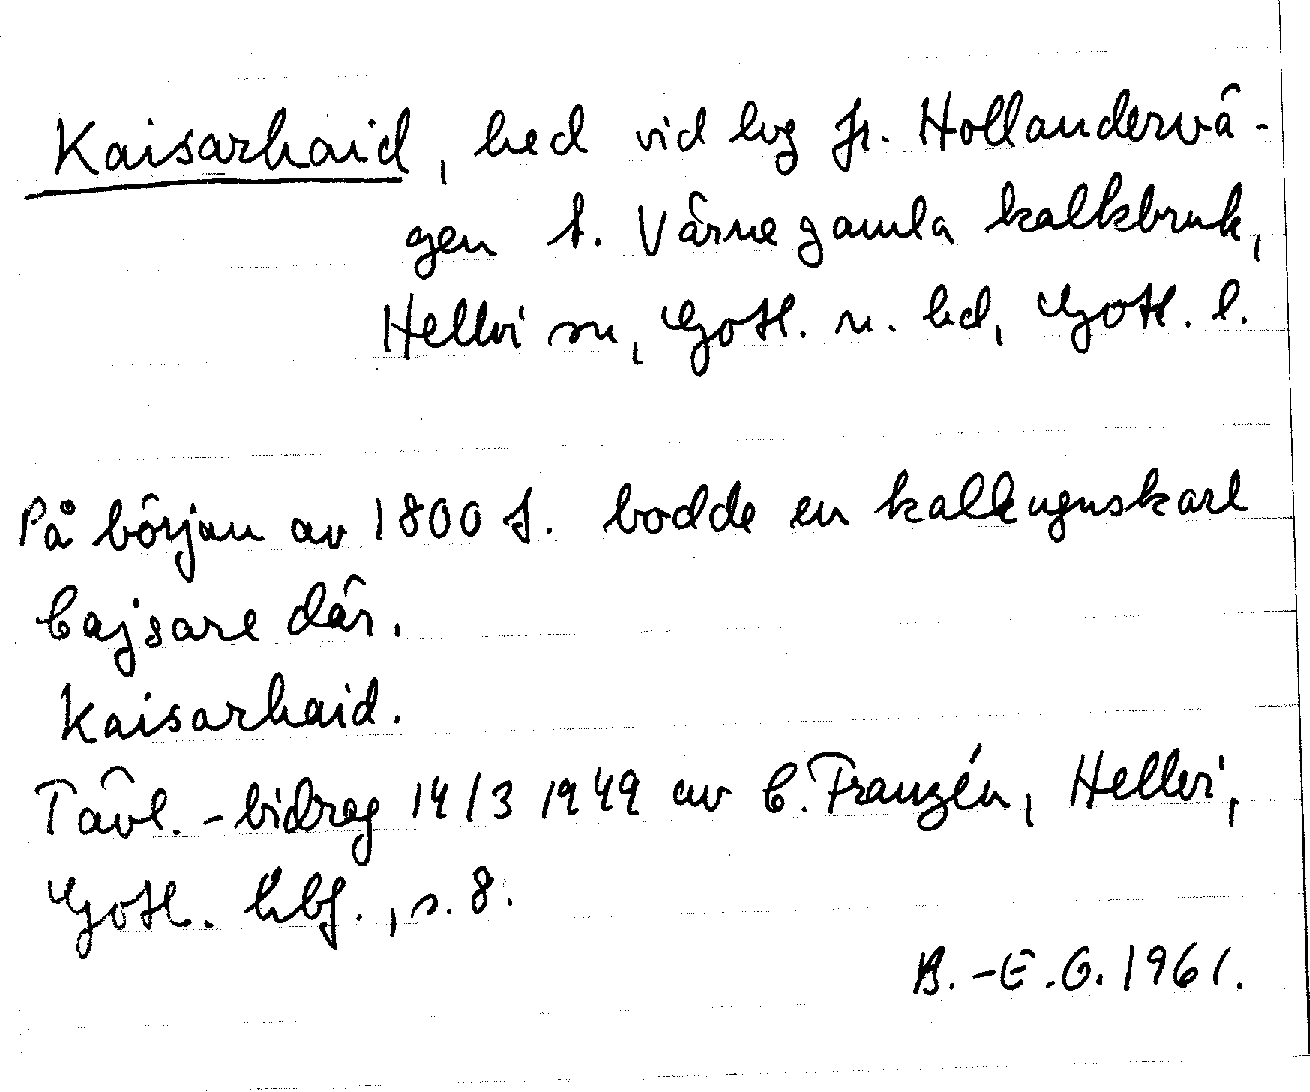 Kaisarhaid, hed vid lvg fr. Hollandervä-
gen t. Värne gamla kalkbruk,
Hellvi sn, Gotl. n. hd, Gotl. l.
På början av 1800 t. bodde en kalkugnskarl
Cajsare där.
Kaisarhaid.
Tävl.-bidrag 14/3 1949 av C. Franzén, Hellvi,
Gotl. hbf., s. 8.
B.-E.G. 1961.